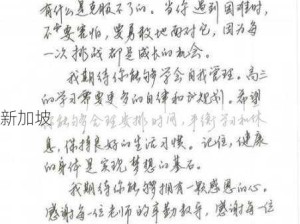 有什么是克服不了的。当你遇到困难时,
不要害怕,要勇敢地面对它,因为每
一次挑战都是成长的机会。
我期待你能够学会自我管理。高三
的学习需要更多的自律和计划。希望
你能够合理安排时间,平衡学习和休
息,保持良好的生活习惯。记住,健康
的身体是实现梦想的基石。
我期待你能够拥有一颗感恩的心。
感谢每一位老师的辛勤教导,感谢每一位
新加坡